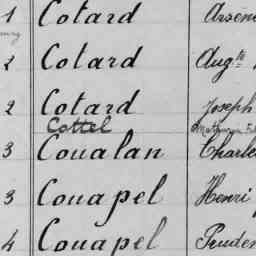 1 Cotard Arsen
2 Cotard Augte
2 Cotard Joseph
Cottel Mathurin
3 Coualan Charle
3 Couapel Henri
4 Couapel Pruden